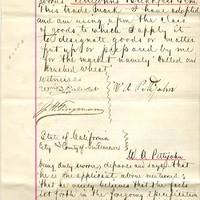 "Pettijohns Breakfast Gem"
This trade mark I have adopted
and am using upon the class
of goods to which I apply it
to designate goods or matter
put up or prepared by me
for the market namely "Rolled and
Crushed Wheat"
Witnesses
W. A. Pettijohn
State of California
City & County of San Francisco
W. A. Pettijohn
being duly sworn deposes and says that
he is the applicant above mentioned;
that he verily believes that the facts
set forth in the foregoing specification